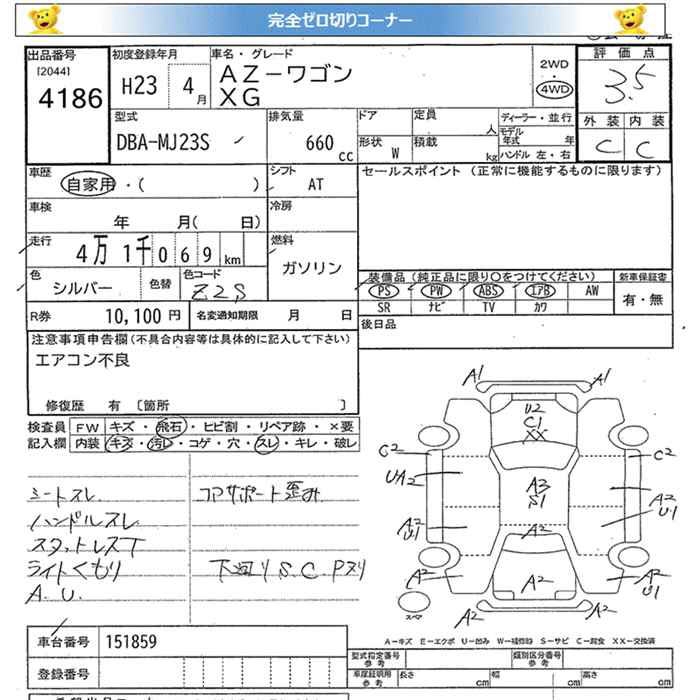 完全ゼロ切りコーナー
出品番号
[2044]
4186
初度登録年月
H23 4月
車名・グレード
AZ-ワゴン
XG
2WD
4WD
評価点
3.5
外装 内装
C C
型式
DBA-MJ23S
排気量
660 cc
ドア
定員
人
形状
W
積載
kg
ディーラー・並行
モデル年式 年
ハンドル 左・右
車歴
自家用・( )
シフト
AT
セールスポイント (正常に機能するものに限ります)
車検
年 月( 日)
冷房
走行
4万 1千 0 6 9 km
燃料
ガソリン
色
シルバー
色替
色コード
Z2S
装備品 (純正品に限り○をつけてください)
新車保証書
PS PW ABS エアB AW
SR ナビ TV カワ
有・無
R券 10,100 円
名変通知期限 月 日
後日品
注意事項申告欄(不具合内容等は具体的に記入して下さい)
エアコン不良
修復歴 有 〔箇所 〕
検査員
記入欄
FW キズ・飛石・ヒビ割・リペア跡・×要
内装 キズ・汚レ・コゲ・穴・スレ・キレ・破レ
シートスレ
コアサポート歪み
ハンドルスレ
スタットレスT
ライトくもり
下廻りS.C.Pヌリ
A.U.
A1
A1
U2
C1
XX
C2
C2
UA2
A3
S1
A2
U1
A2
U1
A2
A2
A2
U1
A2
A2
A2
スペア
A-キズ E-エクボ U-凹み W-補修跡 S-サビ C-腐食 XX-交換済
車台番号
151859
登録番号
型式指定番号
参考
類別区分番号
参考
車庫証明用
参考
長さ cm
幅 cm
高さ cm